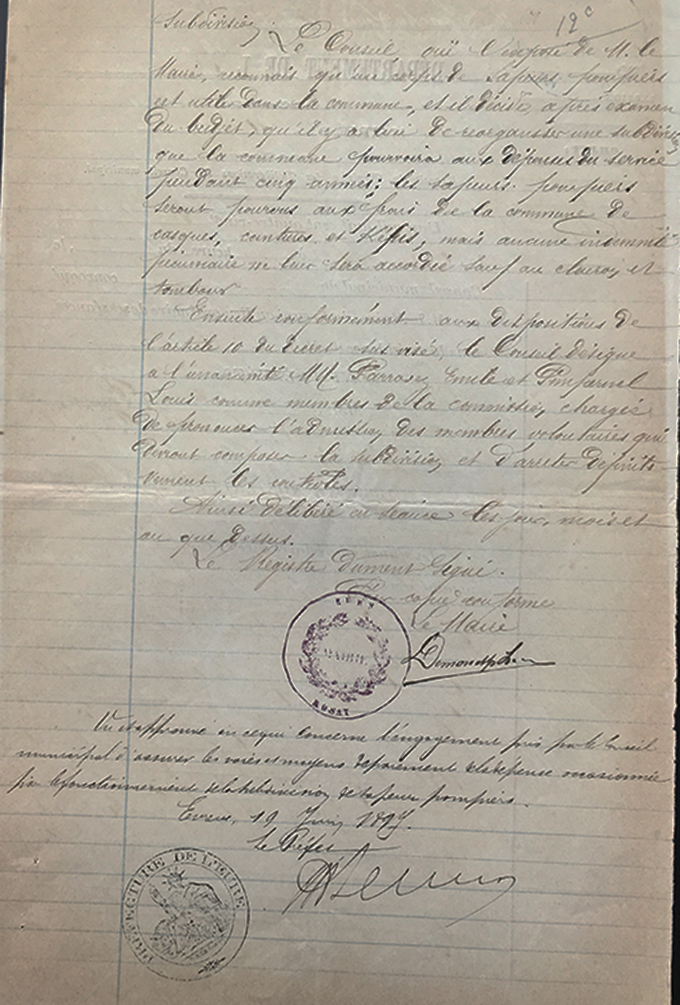 12e
Subdivision
Le Conseil ouï l'exposé de M. le
Maire, reconnait qu'un corps de Sapeurs pompiers
est utile dans la commune, et il décide, après examen
du budget, qu'il y a lieu de réorganiser une subdivision
que la commune pourvoira aux dépenses du service
pendant cinq années; les sapeurs pompiers
seront pourvus aux frais de la commune de
casques, ceintures et Képis, mais aucune indemnité
pécuniaire ne leur sera accordée sauf au clairon et
tambour
Ensuite conformément aux dispositions de
l'article 10 du décret sus visé, le Conseil désigne
à l'unanimité MM. Emile et
Louis comme membres de la commission chargée
de prononcer l'admission des membres volontaires qui
devront composer la subdivision et d'arrêter définiti-
vement les contrôles.
Ainsi délibéré en séance les jour, mois et
an que dessus.
Le Registre dument signé.
Pour copie conforme
Le Maire
MAIRIE
EURE
Vu et approuvé en ce qui concerne l'engagement pris par le Conseil
municipal d'assurer les voies et moyens de paiement de la dépense occasionnée
par le fonctionnement de la subdivision de sapeurs pompiers.
Evreux, 19 Juin 1897.
Le Préfet
PREFECTURE DE L'EURE